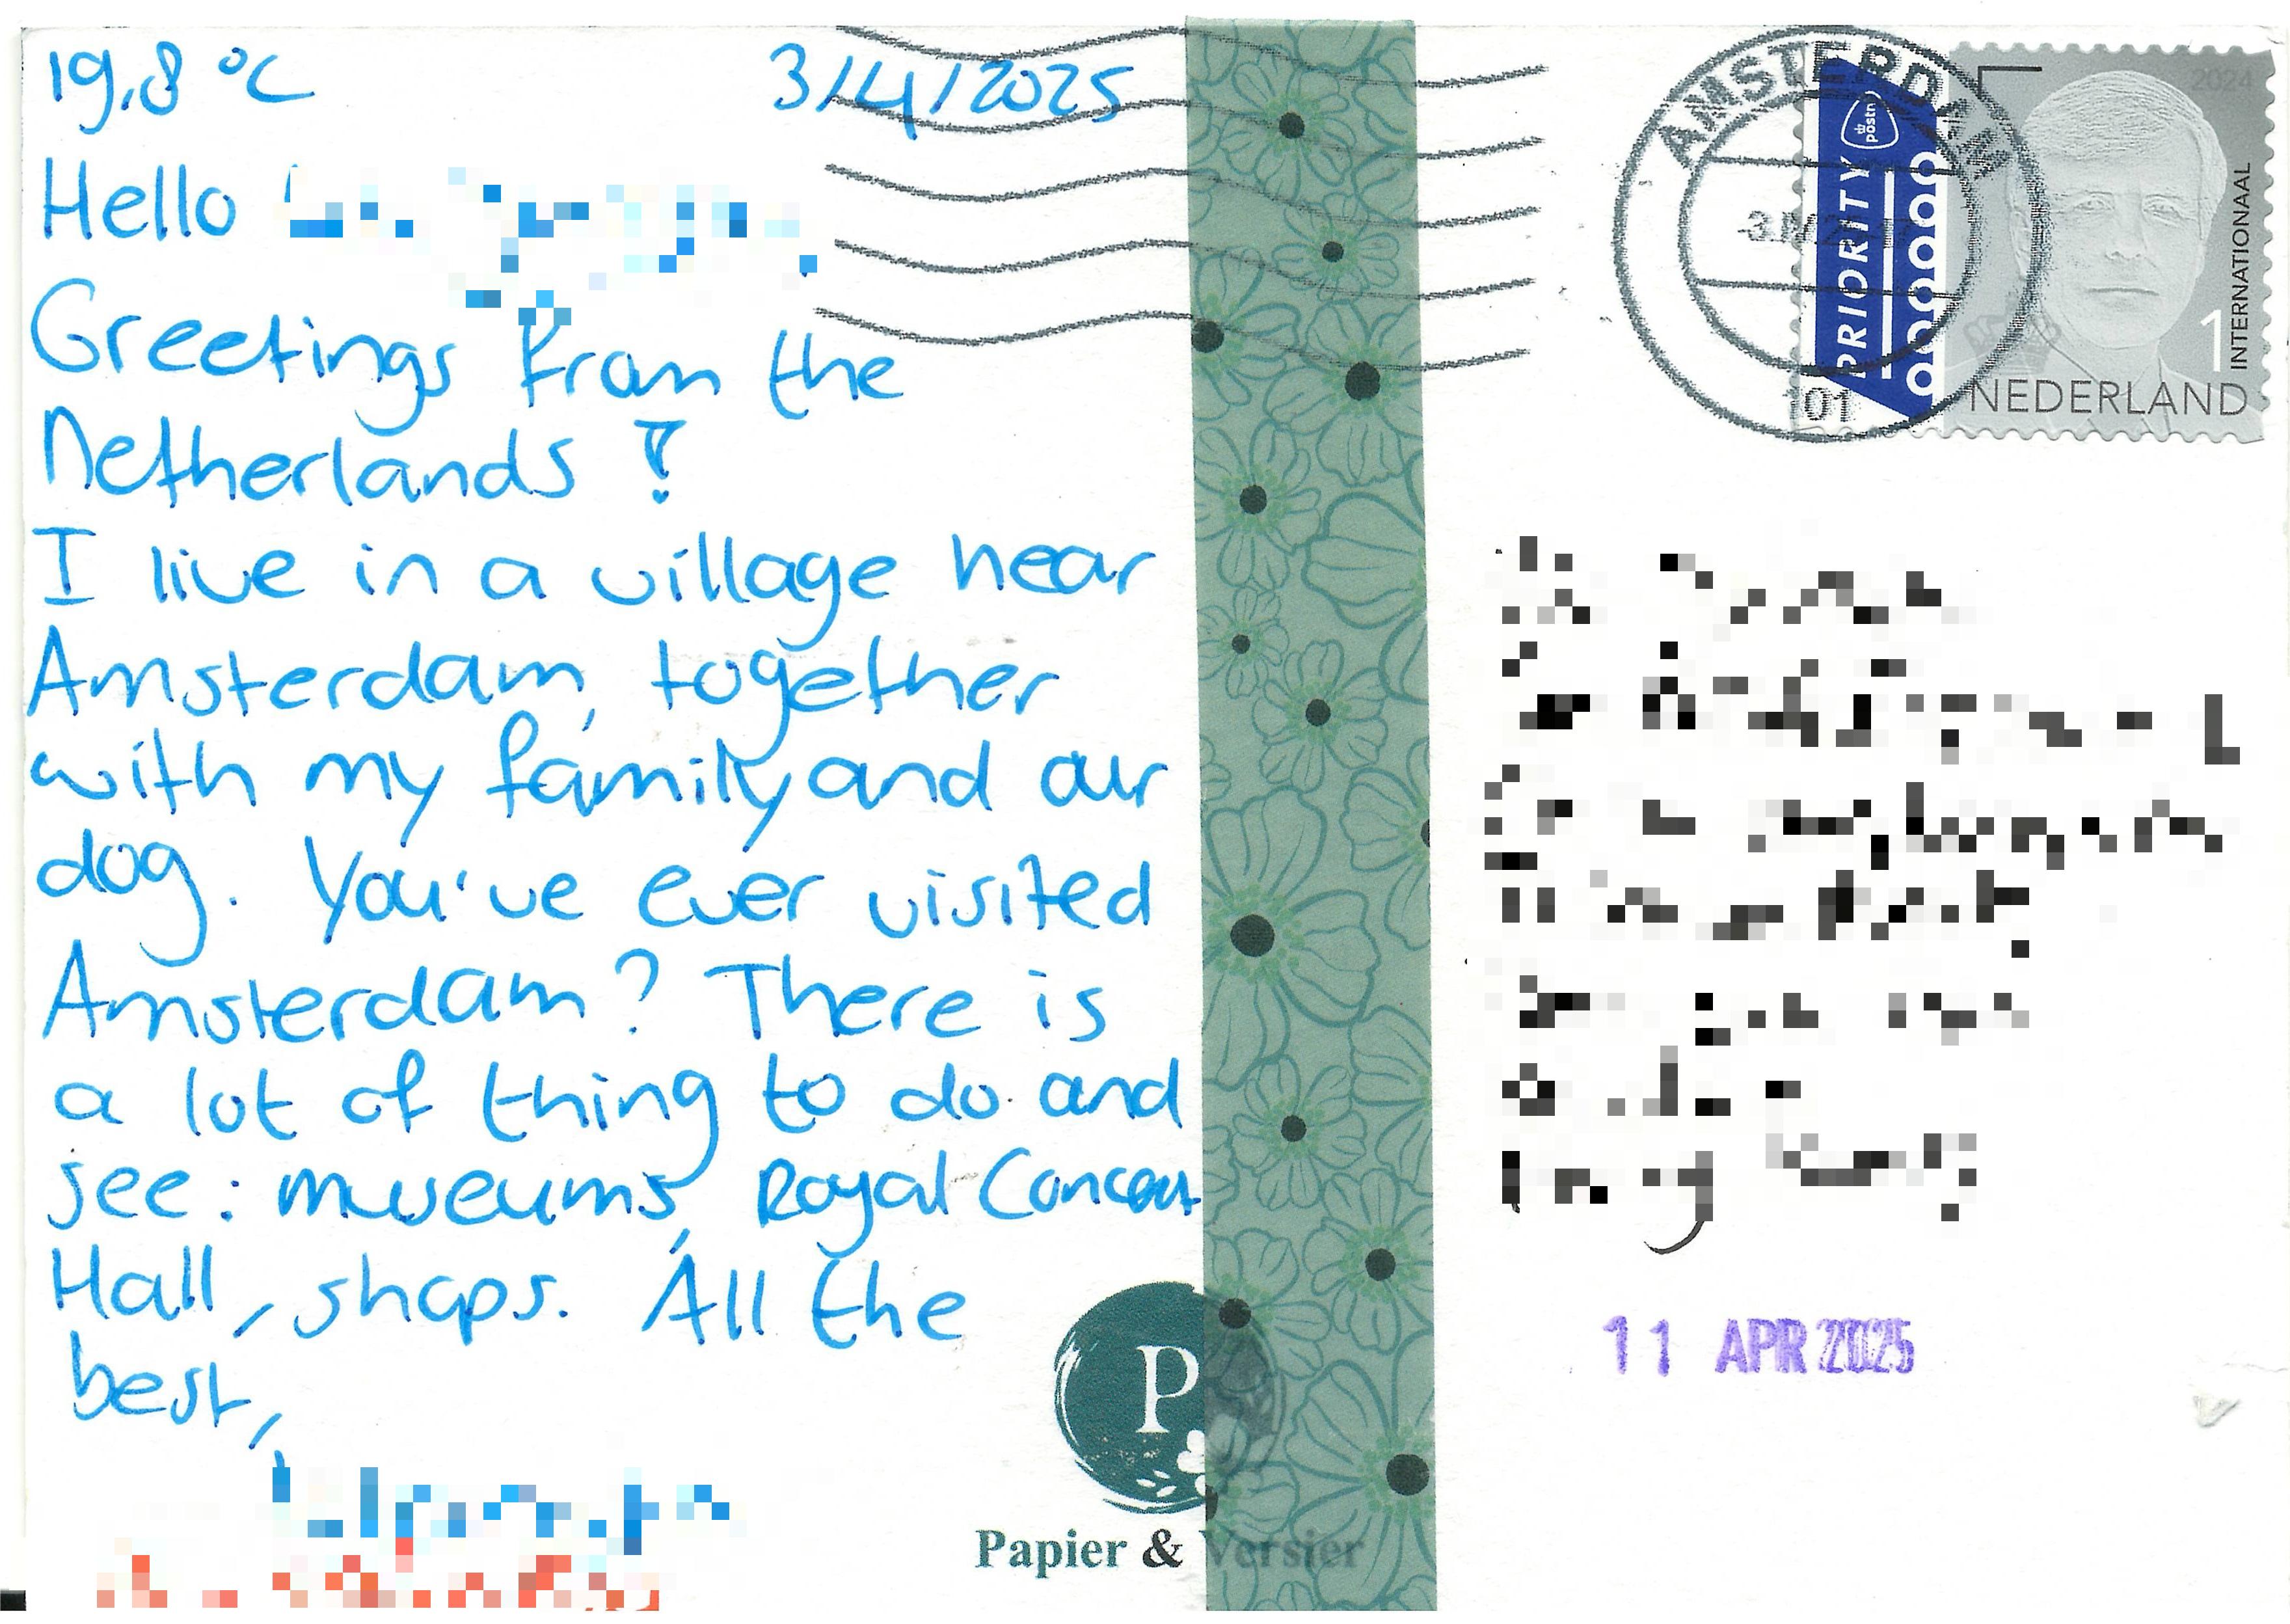 19,8 °C 3/4/2025
Hello
Greetings from the
Netherlands!
I live in a village near
Amsterdam, together
with my family and our
dog. You've ever visited
Amsterdam? There is
a lot of thing to do and
see: museums, Royal Concert
Hall, shops. All the
best,
P
Papier & Versier
AMSTERDAM
01
PRIORITY
postnl
2024
1 INTERNATIONAAL
NEDERLAND
11 APR 2025